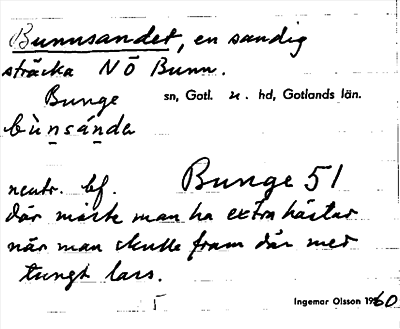 Bunnsandet, en sandig
sträcka NÖ Bunn.
Bunge sn, Gotl. n. hd, Gotlands län.
bùnsánda
neutr. bf. Bunge 51
där måste man ha extra hästar
när man skulle fram där med
tungt lass.
Ingemar Olsson 1960